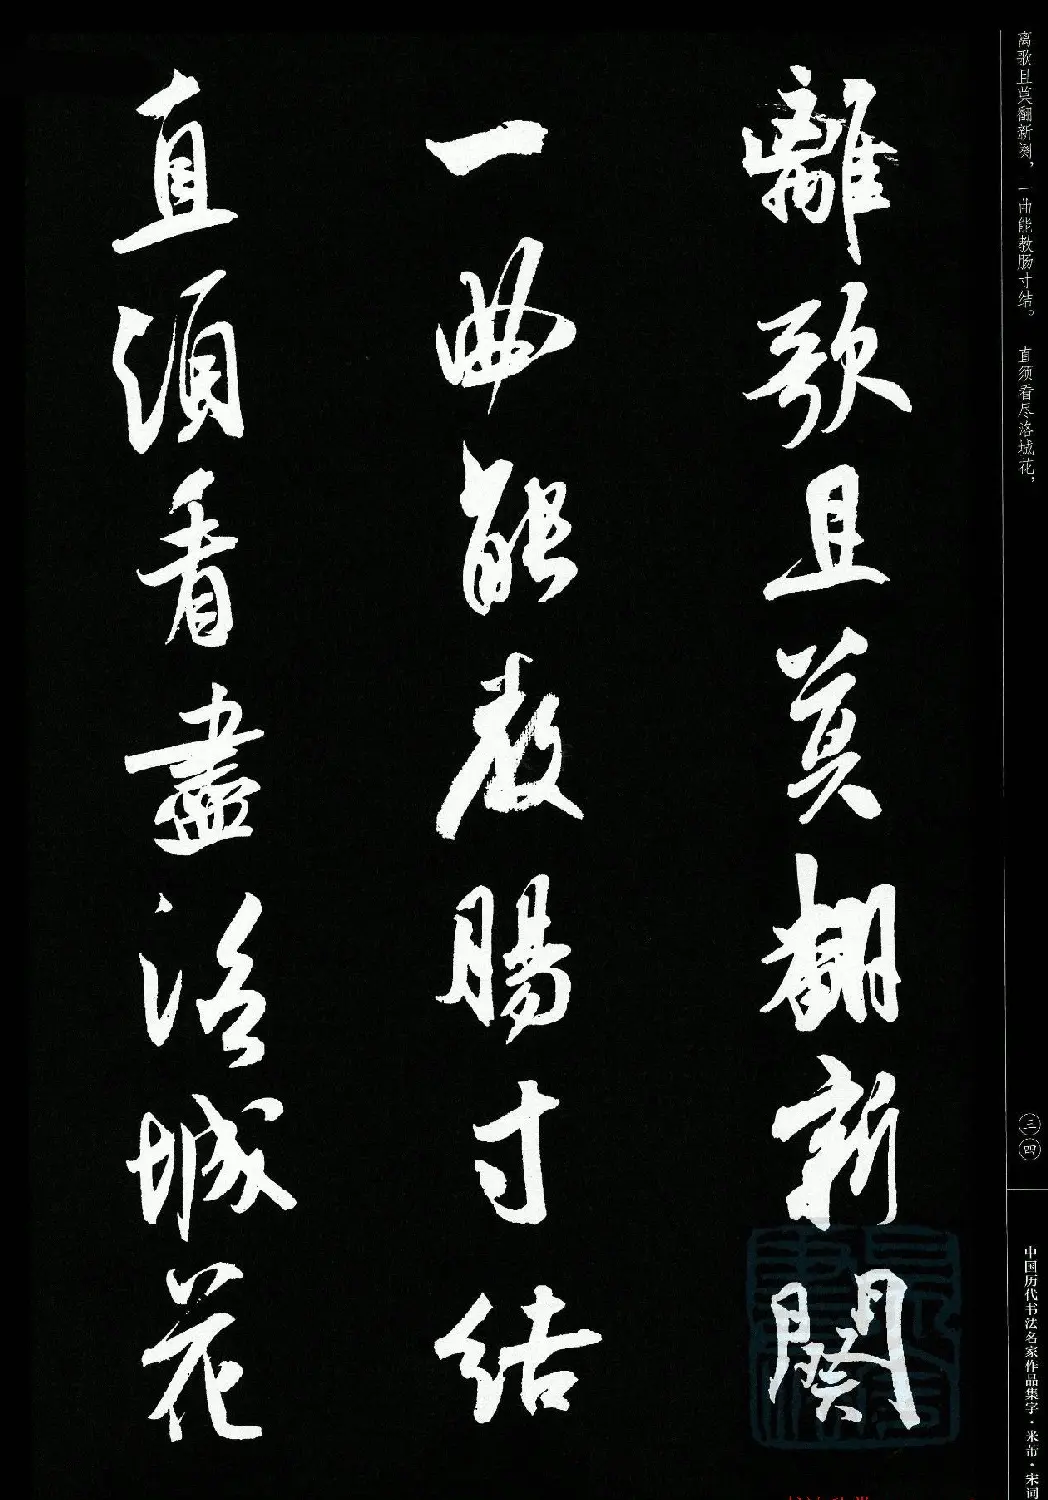 離歌且莫翻新闋
一曲能教腸寸結
直須看盡洛城花
离歌且莫翻新阕，一曲能教肠寸结。 直须看尽洛城花，
三四
中国历代书法名家作品集字·米芾·宋词